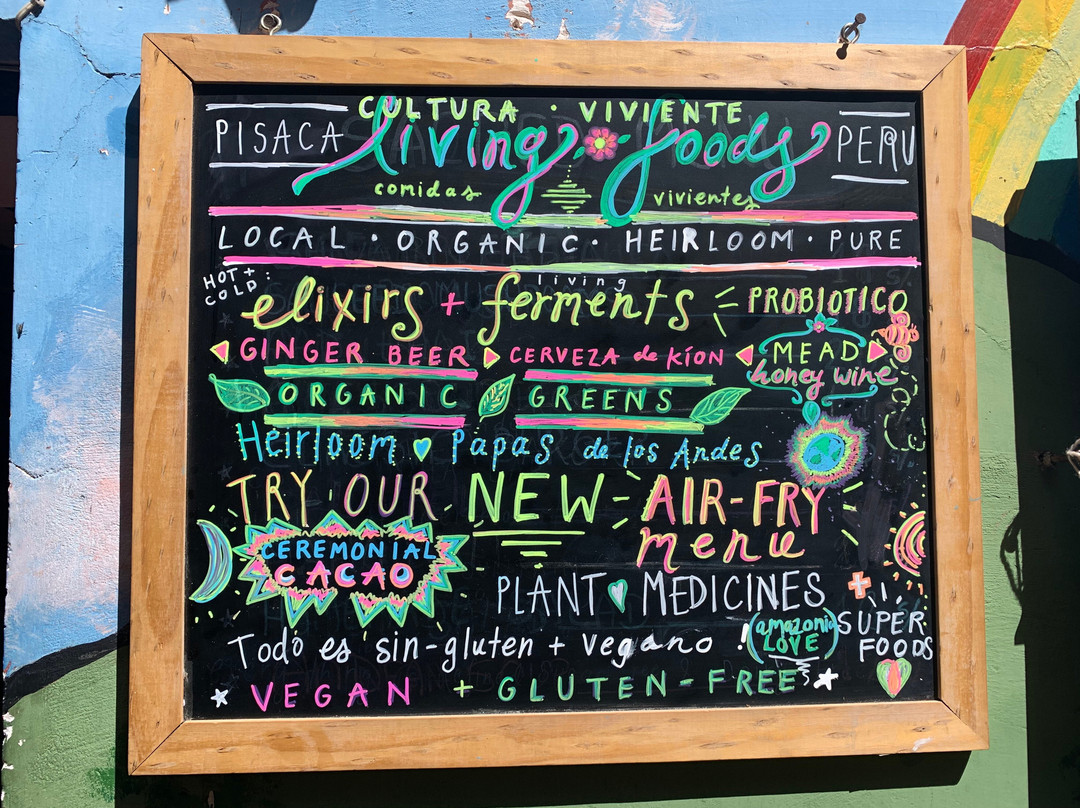 CULTURA · VIVIENTE
PISACA living foods PERU
comidas vivientes
LOCAL · ORGANIC · HEIRLOOM · PURE
HOT + COLD: elixirs + living ferments PROBIOTICO
GINGER BEER CERVEZA de KÍON MEAD
honey wine
ORGANIC GREENS
Heirloom Papas de los Andes
TRY OUR NEW AIR-FRY
menu
CEREMONIAL
CACAO
PLANT MEDICINES +
Todo es sin-gluten + vegano !
(amazonia LOVE)
SUPER
FOODS
VEGAN + GLUTEN-FREE